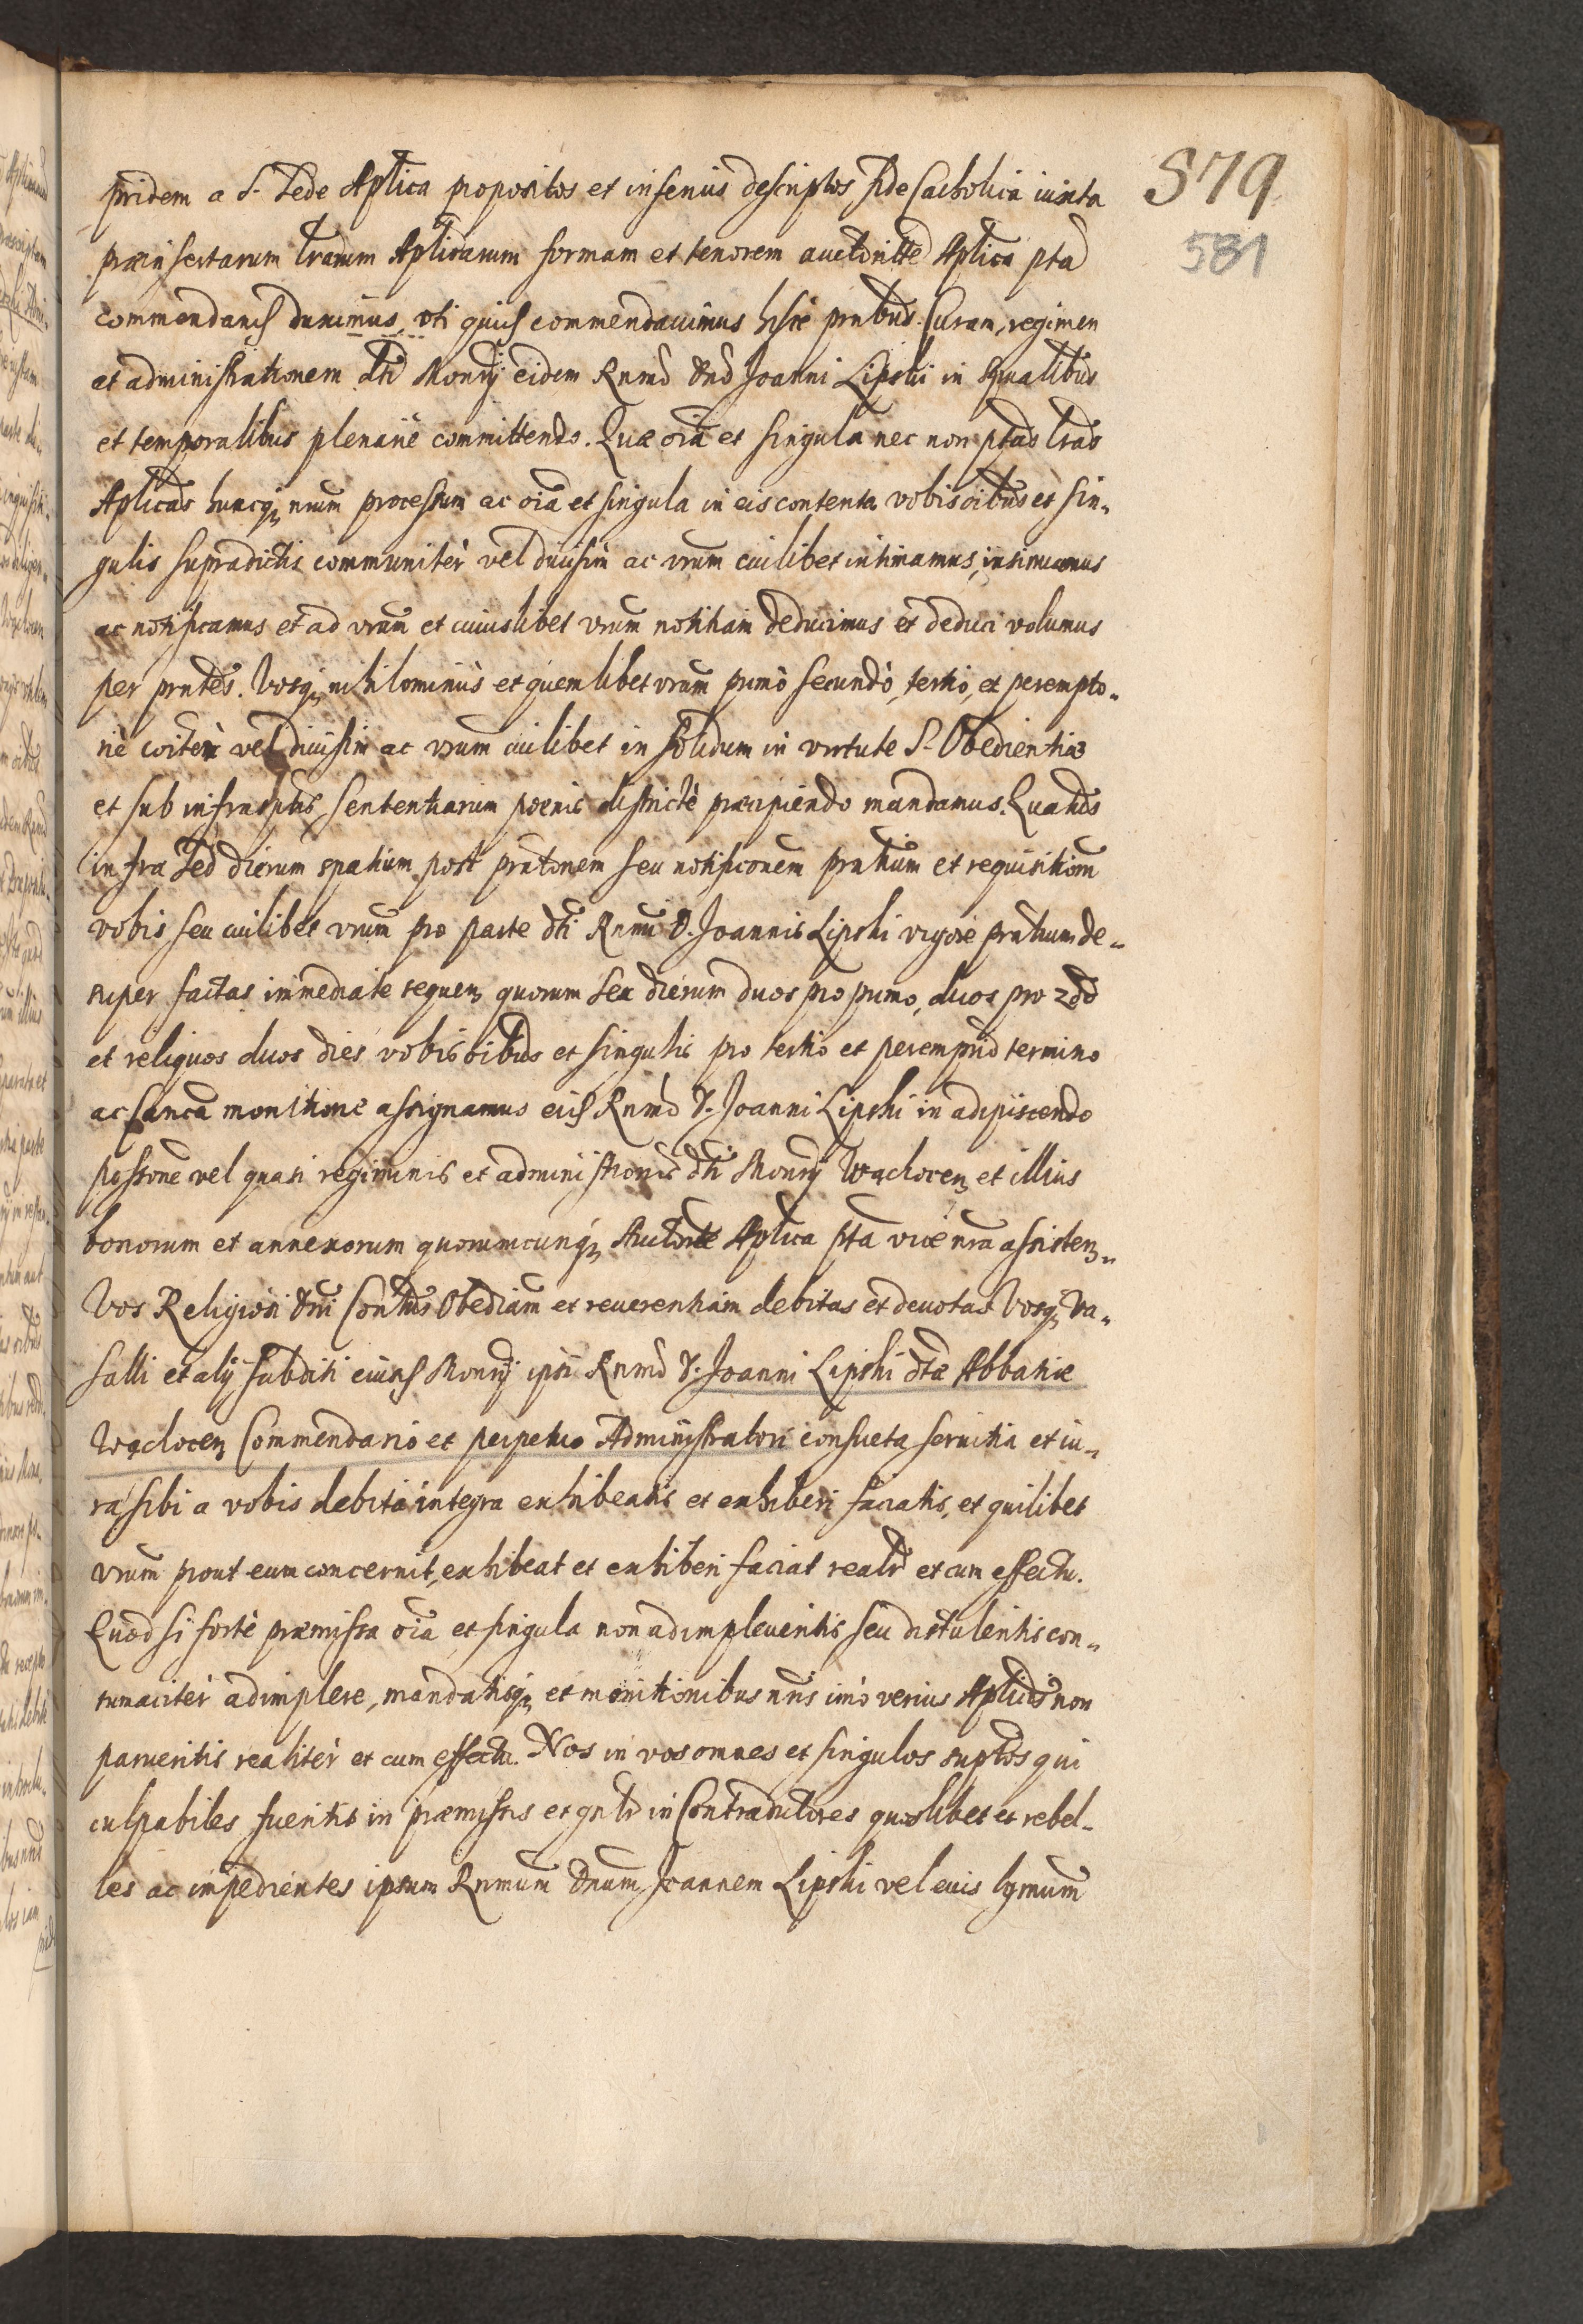 579
581
pridem a S. Sede Aplica propositos et inserius descriptos fide Catholica iuxta
præinsertarum lrarum Aplicarum formam et tenorem auctoritte Aplica pta
commendans duximus, vti quid commendauimus hisce pntibus. Curam, regimen
et administrationem dti Monrij eidem Rnmo Dno Joanni Lipski in spualibus
et temporalibus plenariè committendo. Quæ oia et singula nec non ptas lras
Aplicas huncq; nrum processum ac oia et singula in eis contenta vobis oibus et sin-
gulis supradictis communitèr vel diuisim ac vrum cuilibet intimamus, insinuamus
ac notificamus et ad vram et cuiuslibet vrum notitiam deducimus et deduci volumus
per pntes. Vosq; nihilominùs et quemlibet vrum primò secundò, tertio, et perempto-
riè coiter vel diuisim ac vrum cuilibet in solidum in virtute S. Obedientiæ
et sub infrasptis sententiarum poenis districtè præcipiendo mandamus. Quatus
infra sex dierum spatium post pntonem seu notificonem pntium et requisitiom
vobis seu cuilibet vrum pro parte dti Rnmi D. Joannis Lipski vigore pntium de-
super factas immediate sequen quorum sex dierum duos pro primo, duos pro 2do
et reliquos duos dies vobis oibus et singulis pro tertio et peremprio termino
ac Canca monitione assignamus Rnmo D. Joanni Lipski in adipiscendo
possone vel quasi regiminis et administronis dti Monrij Wąchocen et illius
bonorum et annexorum quorumcunq; Auctorte Aplica pta vice nra assisten-
Vos Religiosi Dni Contus Obediam et reuerentiam debitas et deuotas Vosq; Va-
salli et alij subditi eiusd Monrij ipsi Rnmo D. Joanni Lipski dtæ Abbatiæ
Wąchocen Commendario et perpetuo Administratori consueta seruitia et iu-
ra sibi a vobis debita integra exhibeatis et exhiberi faciatis, et quilibet
vrum prout eum concernit, exhibeat et exhiberi faciat realr et cum effectu.
Quod si fortè præmissa oia et singula non adimpleueritis seu distuleritis con-
tumacitèr adimplere, mandatisq; et monitionibus nris imò verius Aplicis non
parueritis realitèr et cum effectu. Nos in vos omnes et singulos suptos qui
culpabiles fueritis in præmissis et gnlr in Contradictores quoslibet et rebel-
les ac impedientes ipsum Rnmum Dnum Joannem Lipski vel eius lgmum